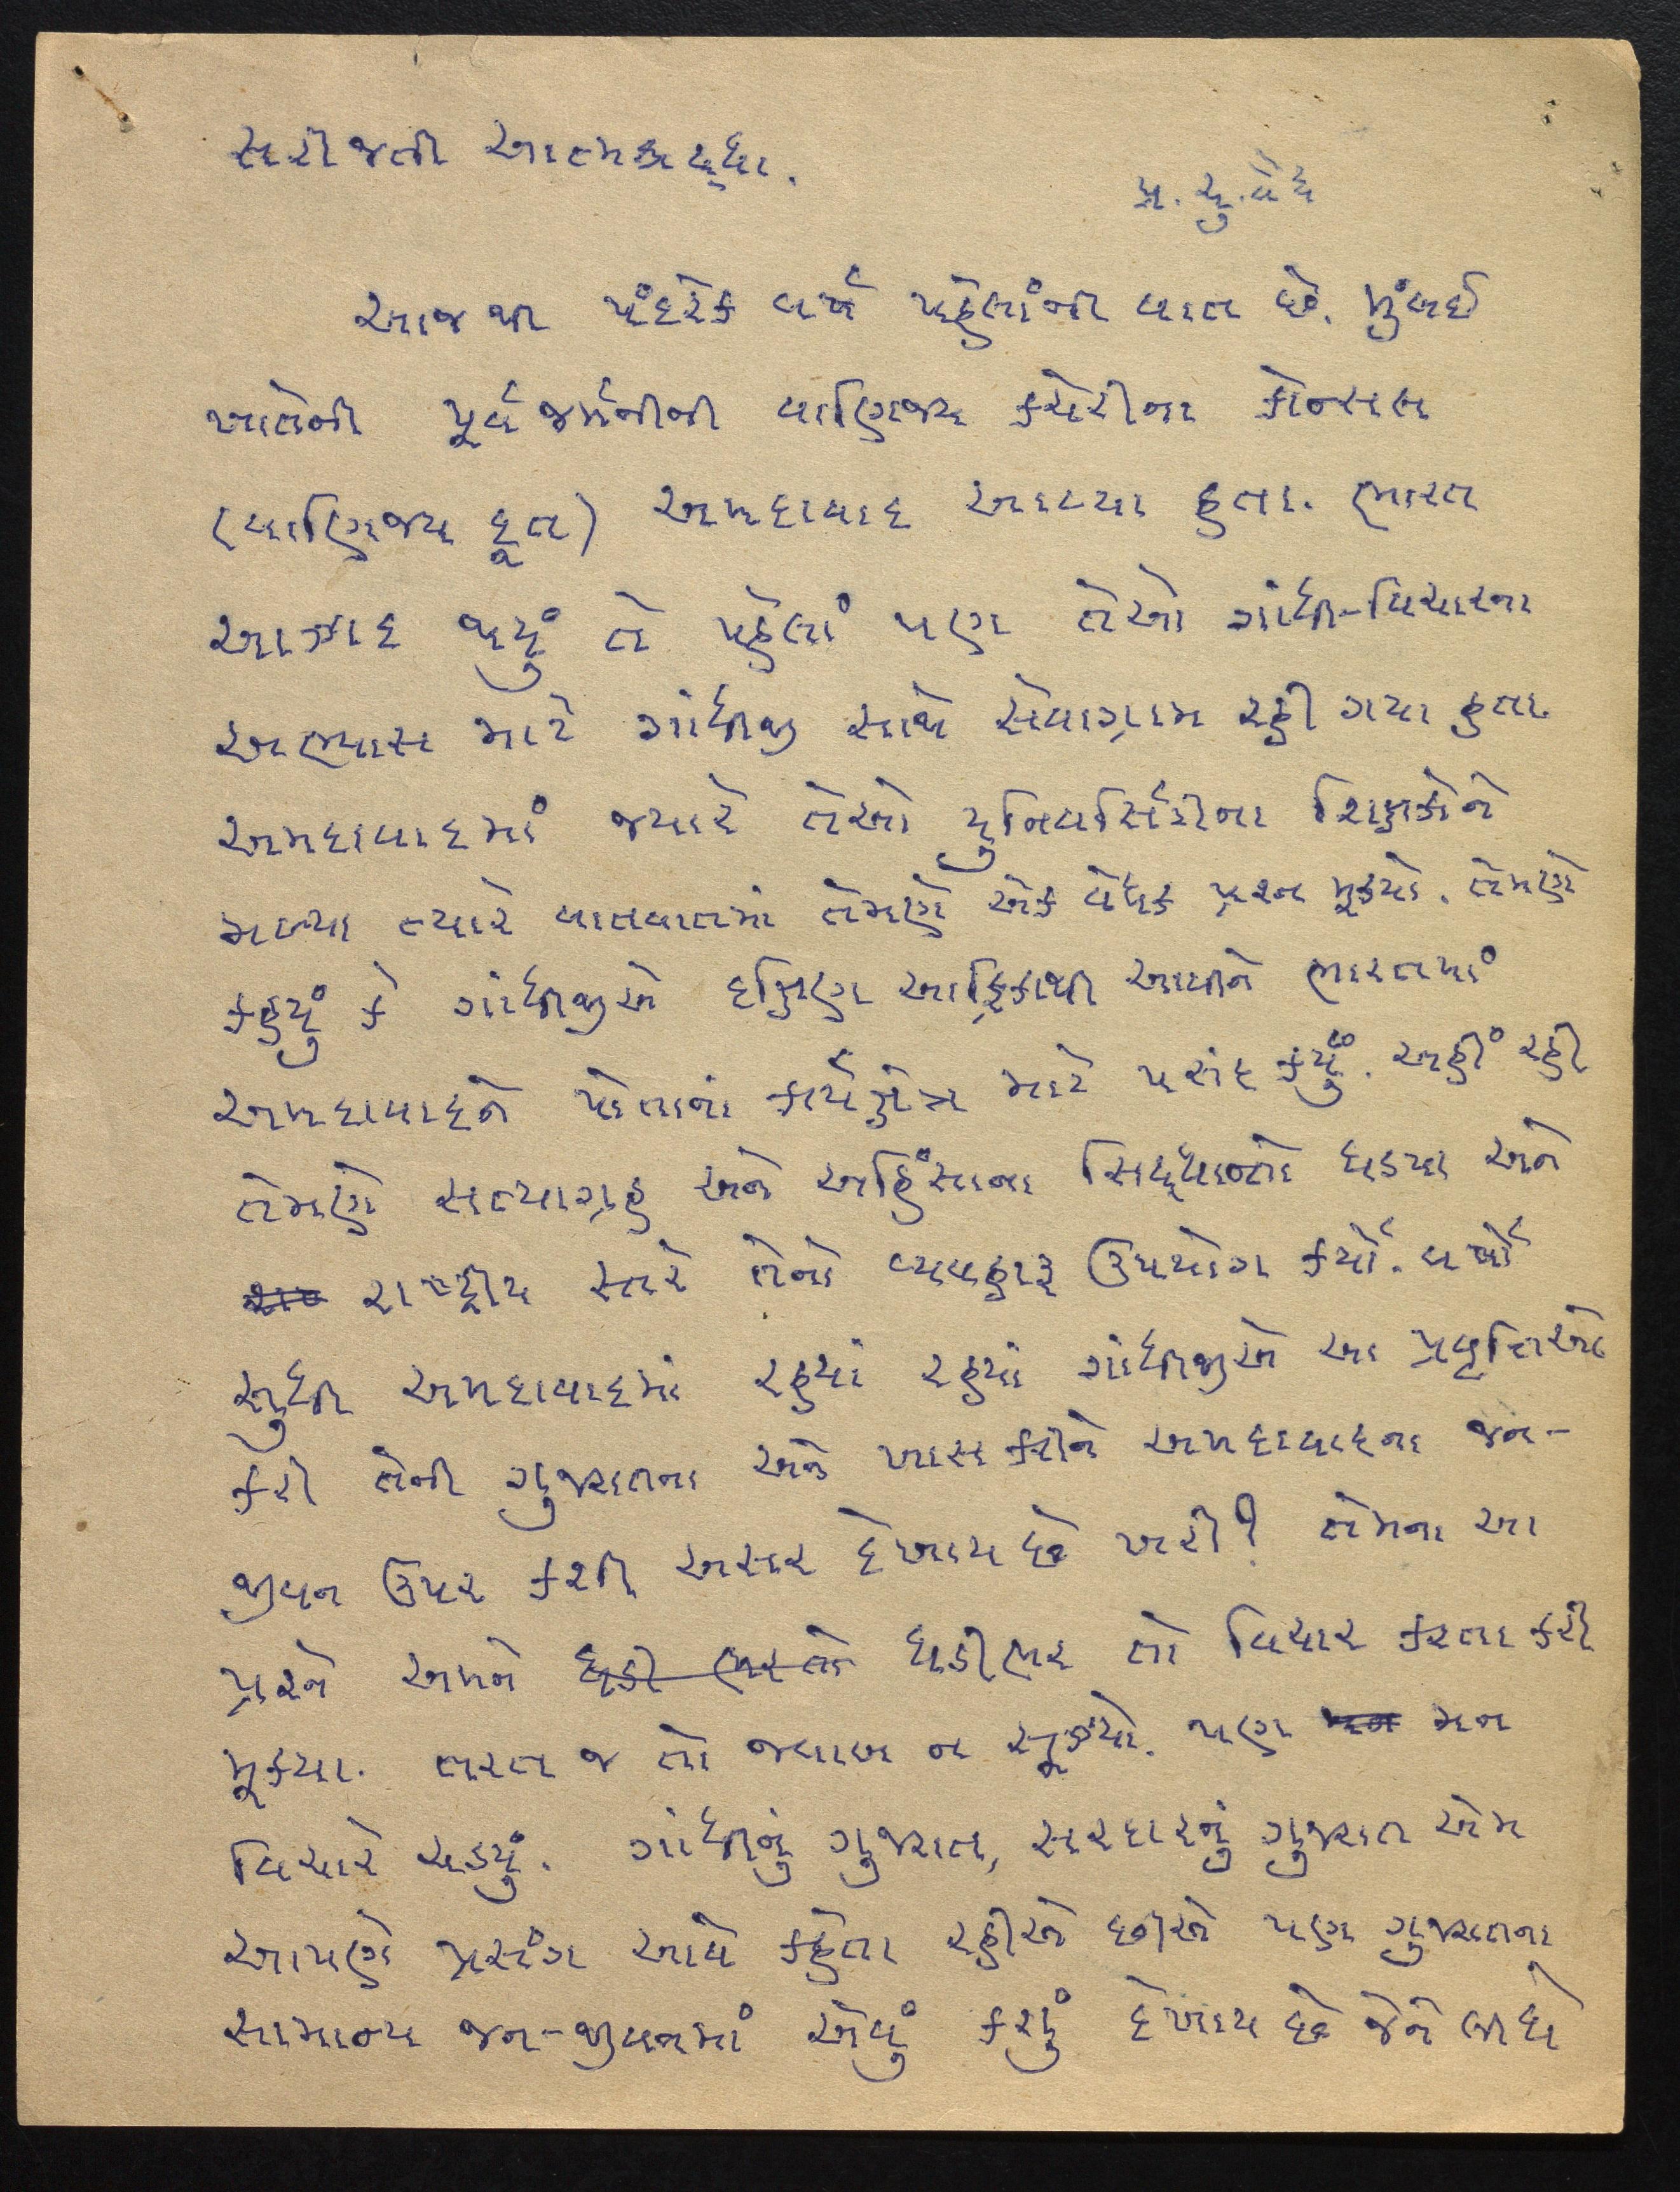 સરોજની આત્મકથા.
પ્ર. ચુ. વૈદ્ય
આજથી પંદરેક વર્ષ પહેલાંની વાત છે. મુંબઈ
ખાતેની પૂર્વ જર્મનીની વાણિજ્ય કચેરીના કોન્સલ
(વાણિજ્ય દૂત) અમદાવાદ આવ્યા હતા. ભારત
આઝાદ થયું તે પહેલાં પણ તેઓ ગાંધી-વિચારના
અભ્યાસ માટે ગાંધીજી સાથે સેવાગ્રામ રહી ગયા હતા.
અમદાવાદમાં જ્યારે તેઓ યુનિવર્સિટીના શિક્ષકોને
મળ્યા ત્યારે વાતવાતમાં તેમણે એક વેધક પ્રશ્ન મૂક્યો. તેમણે
કહ્યું કે ગાંધીજીએ દક્ષિણ આફ્રિકાથી આવીને ભારતમાં
અમદાવાદને પોતાના કાર્યક્ષેત્ર માટે પસંદ કર્યું. અહીં રહી
તેમણે સત્યાગ્રહ અને અહિંસાના સિદ્ધાન્તો ઘડ્યા અને
રાષ્ટ્રીય સ્તરે તેનો વ્યવહારુ ઉપયોગ કર્યો. વર્ષો
સુધી અમદાવાદમાં રહ્યાં રહ્યાં ગાંધીજીએ આ પ્રવૃત્તિઓ
કરી તેની ગુજરાતના અને ખાસ કરીને અમદાવાદના જન-
જીવન ઉપર કશી અસર દેખાય છે ખરી? તેમના આ
પ્રશ્ને અમને ઘડી ભર તો ઘડીભર તો વિચાર કરતા કરી
મૂક્યા. તરત જ તો જવાબ ન સૂઝ્યો. પણ મન
વિચારે ચડ્યું. ગાંધીનું ગુજરાત, સરદારનું ગુજરાત એમ
આપણે પ્રસંગ આવે કહેતા રહીએ છીએ પણ ગુજરાતના
સામાન્ય જન-જીવનમાં એવું કશું દેખાય છે જેને લીધે